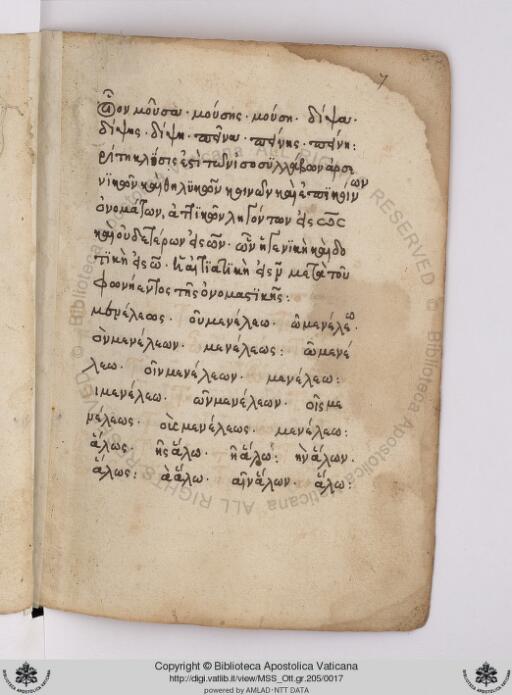 7
οἷον μοῦσα · μούσης · μούση · δίψα ·
δίψης · δίψη · πεῖνα · πείνης · πείνη :
τρίτη κλίσις ἐστὶ τῶν ἰσοσυλλάβων ἀρσε
νικῶν καὶ θηλυκῶν κοινῶν καὶ ἐπικοίνων
ὀνομάτων, ἀττικῶν ληγόντων εἰς ως
καὶ οὐδετέρων εἰς ων · ὧν ἡ γενικὴ καὶ δο
τικὴ εἰς ω · ἡ αἰτιατικὴ εἰς ν μετὰ τοῦ
φωνήεντος τῆς ὀνομαστικῆς :
μενέλεως · οὑ μενέλεω · ὦ μενέλεω
ὁν μενέλεων · μενέλεως : ὦ μενέ
λεω · οἱν μενέλεων · μενέλεω :
ι μενέλεω · ὧν μενέλεων · οἷς με
νέλεως · οὓς μενέλεως · μενέλεω :
ἅλως · ἧς ἅλω · ἧ ἅλω · ἣν ἅλων ·
ἅλως : ἃ ἅλω · αἷν ἅλων · ἅλω :
BIBLIOTECA APOSTOLICA VATICANA
Copyright © Biblioteca Apostolica Vaticana
http://digi.vatlib.it/view/MSS_Ott.gr.205/0017
powered by AMLAD-NTT DATA